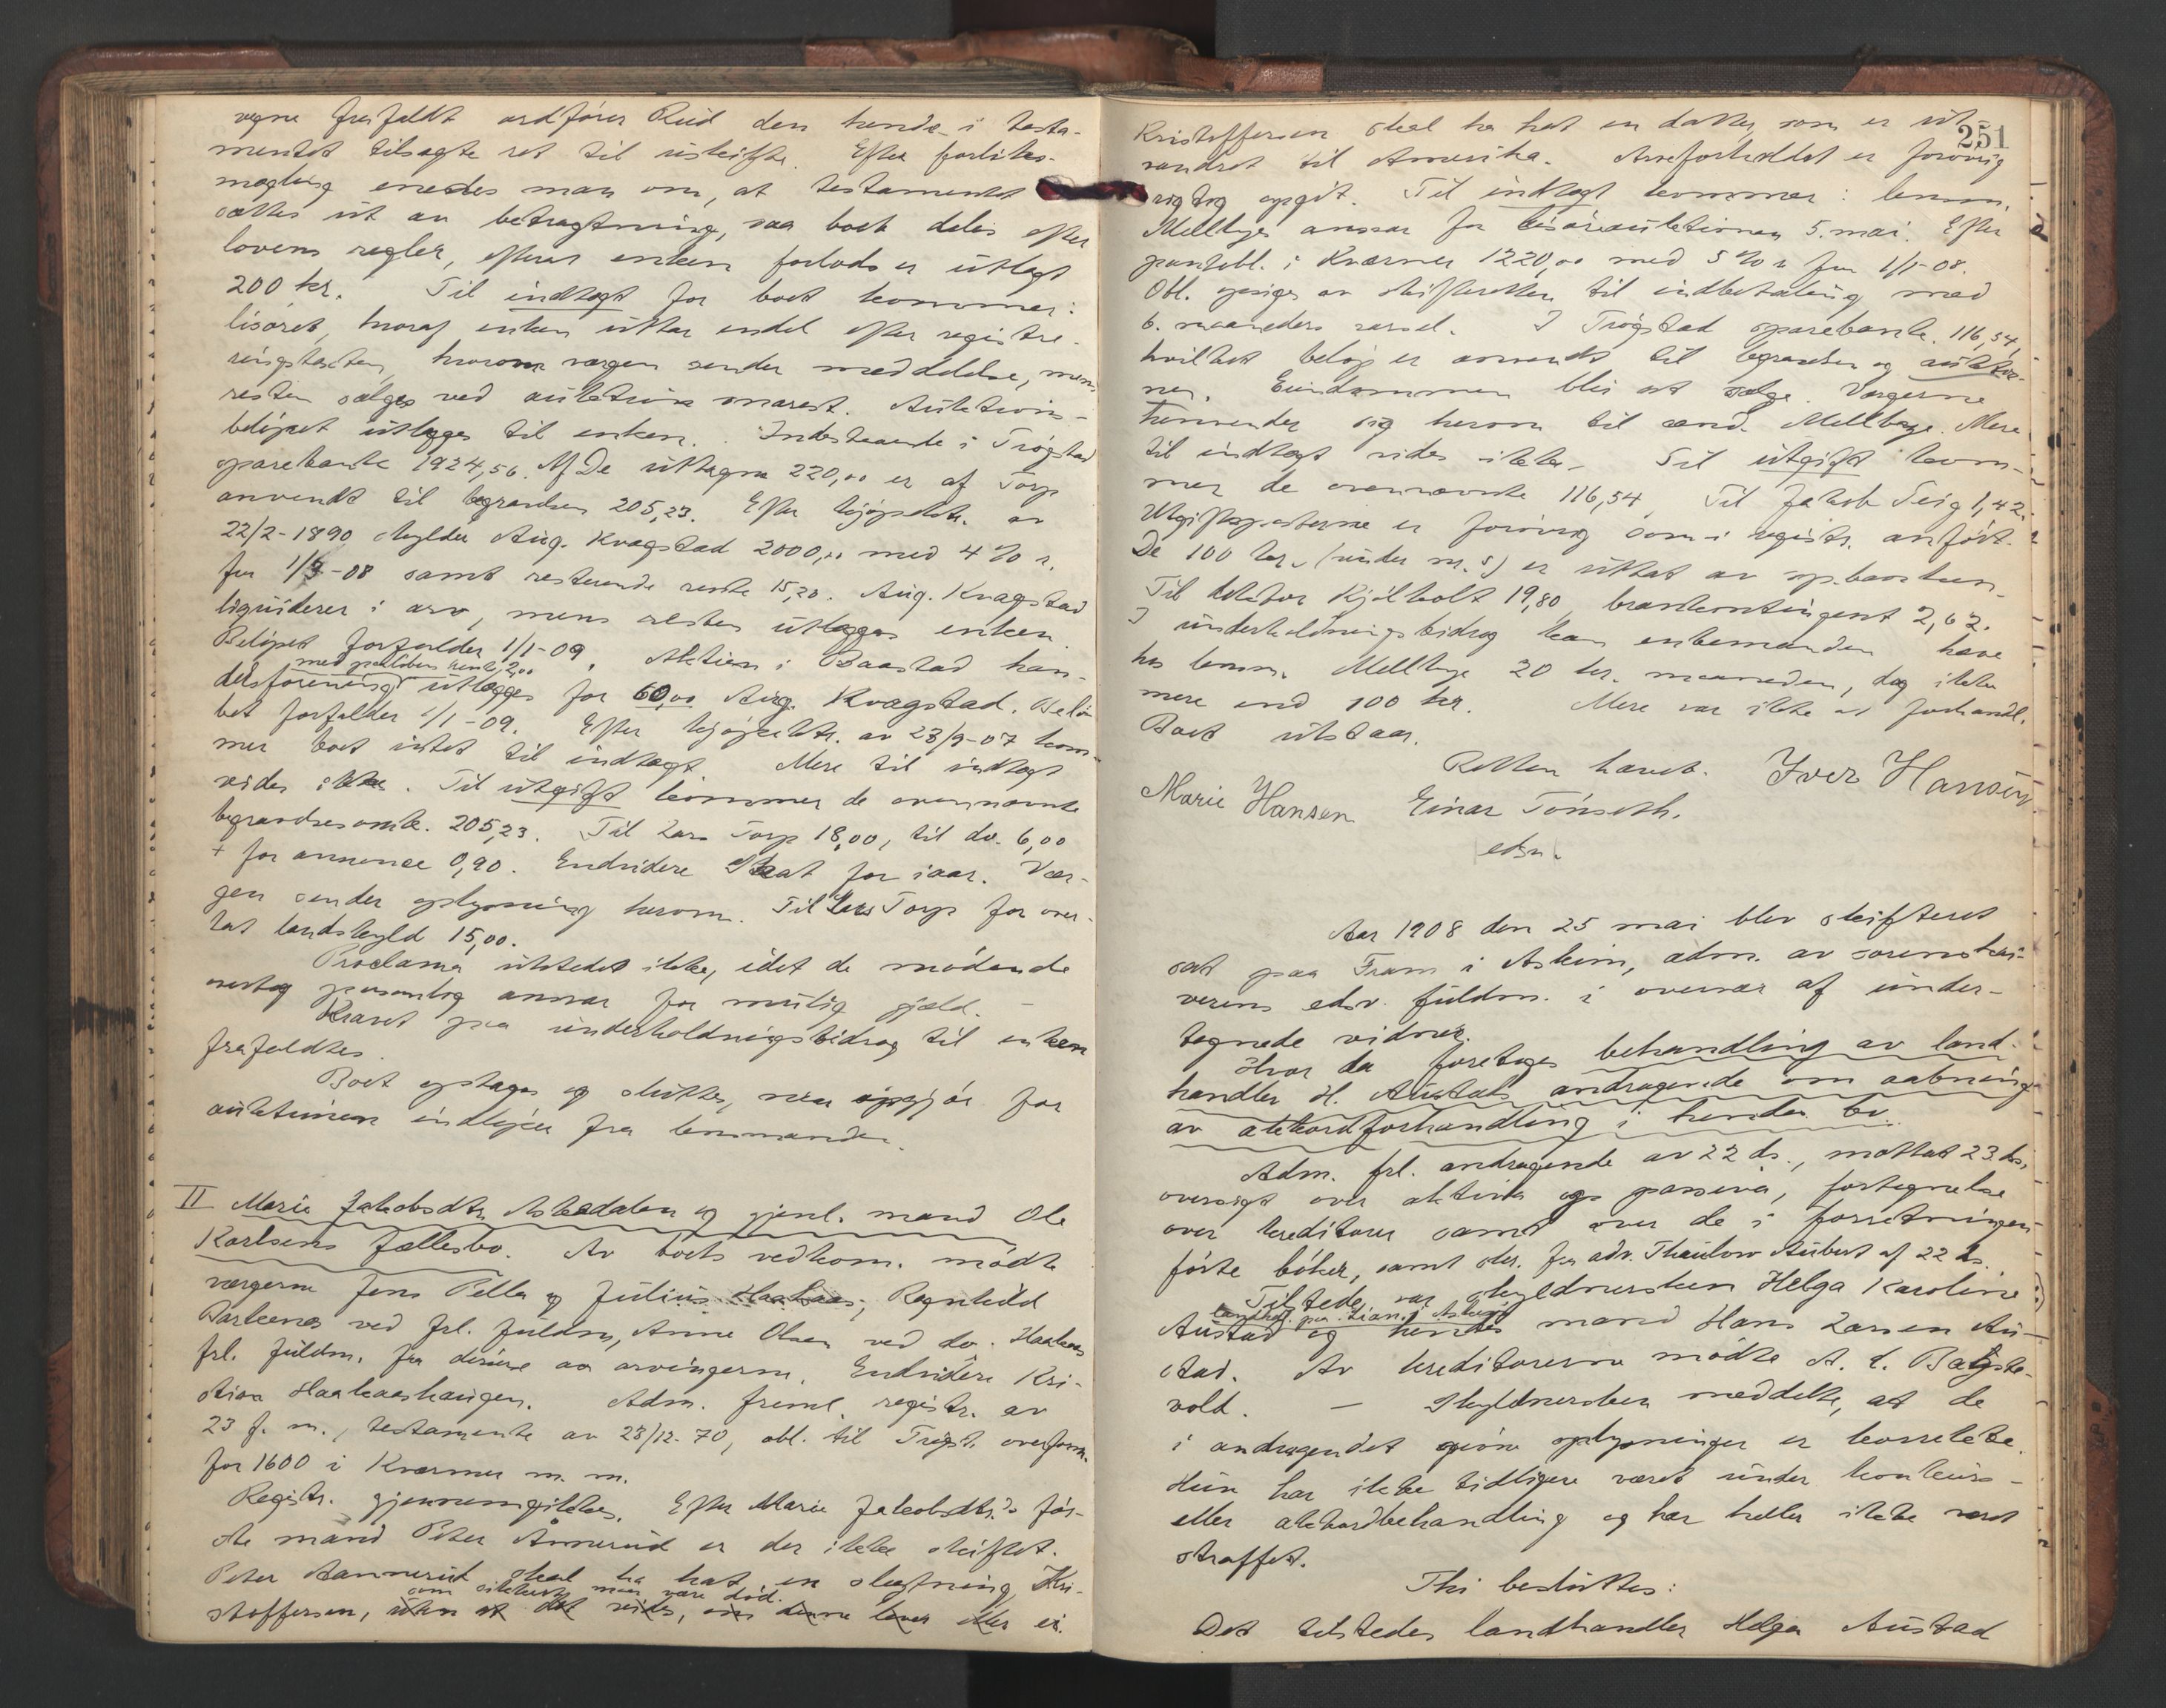 vegne frafaldt ordfører Rud den hende i testa-
mentet tilsagte ret til uskifte. Efter forliks-
mægling enedes man om, at testamentet
sættes ut av betragtning, saa boet deles efter
lovens regler, efterat enken forlods er utlagt
200 kr. Til indtægt for boet kommer:
løsøret, hvoraf enken uttar endel efter registre-
ringstaksten, hvorom værgen sender meddelelse, mens
resten sælges ved auktion snarest. Auktions-
beløpet utlægges til enken. Indestaaende i Trøgstad
sparebank 1924,56. Af De uttagne 220,00 er af Torp
anvendt til begravelsen 205,23. Efter kjøpektr. av
22/2-1890 skylder Aug. Kvagstad 2000,00 med 4 % r.
fra 1/3-08 samt resterende rente 15,20. Aug. Kvagstad
liquiderer i arv, mens resten utlægges enken.
Beløpet forfalder 1/1-09. Aktien i Baastad han-
med paaløben rente 2,00
delsforening utlægges for 60,00 Aug. Kvagstad. Belø-
bet forfalder 1/1-09. Efter kjøpektr. av 23/9-07 kom-
mer boet intet til indtægt. Mere til indtægt
vides ikke. Til utgift kommer de ovennævnte
begravelsesomk. 205,23. Til Lars Torp 18,00, til do. 6,00
+ for annonce 0,90. Endvidere Skat for iaar. Vær-
gen sender oplysning herom. Til Lars Torp for over-
tat landskyld 15,00.
Proclama utstedes ikke, idet de mødende
overtog personlig ansvar for mulig gjæld. -
Kravet paa underholdningsbidrag til enken
frafaldtes.
Boet optages og sluttes, naar opgjør for
auktionen indløper fra lensmanden.
II Marie Jakobsdtr. Askedalen og gjenl. mand Ole
Karlsens fællesbo. Av boets vedkom. mødte
værgerne Jens Pella og Julius Haakaas, Ragnhild
ved frl. fuldm, Anne Olsen ved do. Haakaas
frl. fuldm. fra disse av arvingerne. Endvidere Kri-
stian Haakaashaugen. Adm. freml. registr. av
23 f. m., testamente av 28/12-70, obl. til Trøgst. overform.
for 1600 i Kværner m. m.
Registr. gjennemgikkes. Efter Marie Jakobsdtr.'s før-
ste mand Peter Ånnerud er der ikke skiftet.
Peter Aannerud skal ha hat en slegtning Kri-
som sikkert maa være død.
stoffersen, uten at det vides, om denne lever eller ei.
251
Kristoffersen skal ha hat en datter, som er ut-
vandret til Amerika. Arveforholdet er forøvrig
rigtig opgit. Til indtægt kommer: lensm.
Mellbyes ansvar for løsøreauktionen 5. mai. Efter
panteobl. i Kværner 1220,00 med 5 % r fra 1/1-08.
Obl. opsiges av skifteretten til indbetaling med
6. maaneders varsel. I Trøgstad sparebank. 116,54,
hvilket beløp er anvendt til begravelsen og auktio-
nen. Eiendommen blir at sælge. Værgerne
henvender sig herom til lensm. Mellbye. Mere
til indtægt vides ikke. Til utgift kom-
mer de ovennævnte 116,54. Til Jakob Teig 1,42.
Utgiftsposterne er forøvrig som i registr. anført.
De 100 kr. (under nr. 5) er uttat av sp.banken.
Til doktor Kjølholt 19,80, brankontingent 2,62.
I underholdningsbidrag kan enkemanden hæve
hos lensm. Mellbye 20 kr. maaneden, dog ikke
mere end 100 kr. Mere var ikke at forhandl.
Boet utstaar.
Retten hævet. Iver Hansen
Marie Hansen Einar Tønseth.
edsv.
Aar 1908 den 25 mai blev skifteret
sat paa Fram i Askim, adm. av sorenskri-
verens edsv. fuldm. i overvær af under-
tegnede vidner.
Hvor da foretoges behandling av land-
handler H. Austads andragende om aabning
av akkordforhandling i hendes bo.
Adm. frl. andragende av 22 ds., mottat 23. ds,
oversigt over aktiva og passiva, fortegnelse
over kreditorer samt over de i forretningen
førte bøker, samt skr. fra adv. Thaulow Aubert af 22 ds.
Tilstede var skyldnersken Helga Karoline
landh. paa Fram i Askim
Austad og hendes mand Hans Larsen Au-
stad. Av kreditorerne mødte A. L.
vold. - Skyldnersken meddelte, at de
i andragendet givne oplysninger er korrekte.
Hun har ikke tidligere været under konkurs-
eller akkordbehandling og har heller ikke været
straffet.
Thi besluttes:
Det tilstedes landhandler Helga Austad